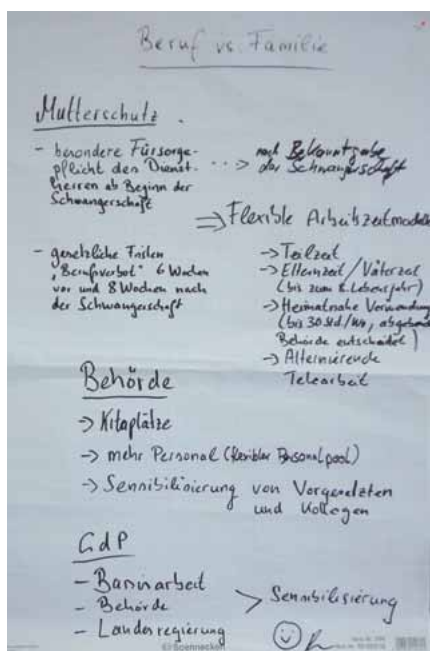 Beruf vs. Familie
Mutterschutz
- besondere Fürsorge-
pflicht des Dienst-
herren ab Beginn der
Schwangerschaft
nach Bekanntgabe
der Schwangerschaft
⇒ Flexible Arbeitszeitmodelle
- gesetzliche Fristen
"Berufsverbot" 6 Wochen
vor und 8 Wochen nach
der Schwangerschaft
-> Teilzeit
-> Elternzeit / Väterzeit
(bis zum 8. Lebensjahr)
-> Heimatnahe Verwendung
(bis 30 Std./Wo, abgebende
Behörde entscheidet)
-> Alternierende
Telearbeit
Behörde
-> Kitaplätze
-> mehr Personal (flexibler Personalpool)
-> Sennibilisierung von Vorgesetzten
und Kollegen
GdP
- Basisarbeit
- Behörde
- Landesregierung
> Sennibilisierung
Soennecken